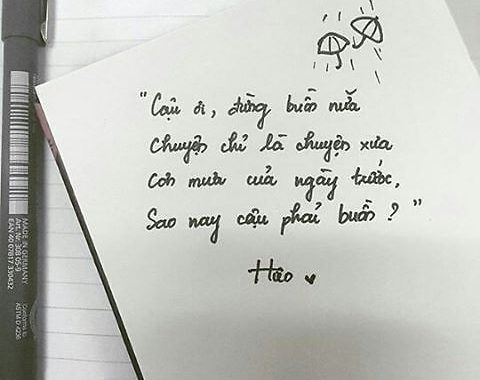 "Cậu ơi, đừng buồn nữa
Chuyện chỉ là chuyện xưa
Cơn mưa của ngày trước,
Sao nay cậu phải buồn ? "
Hạo
MADE IN GERMANY
Art. Nr. 308 05-9
EAN 40 07817 330432
Conforms to
ASTM D-4236